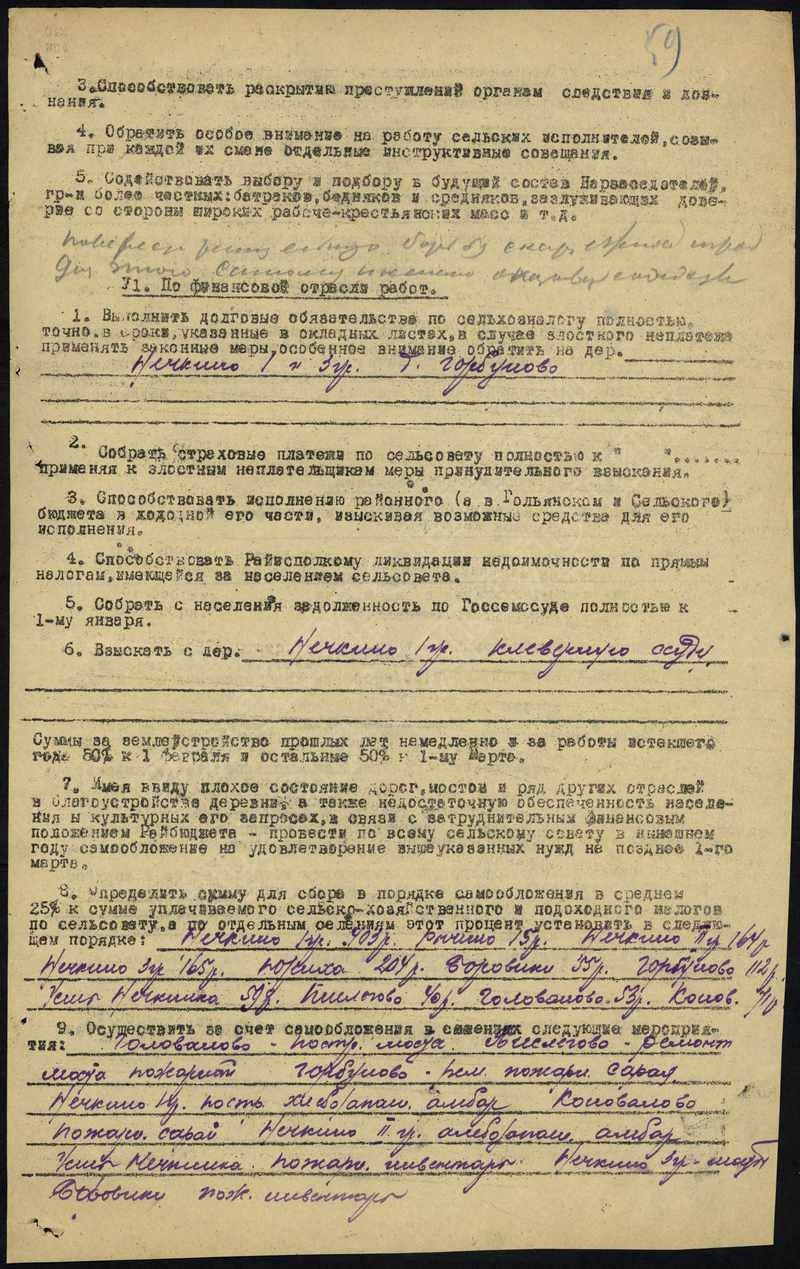 59
3. Способствовать раскрытию преступлений органам следствия и доз-
нания.
4. Обратить особое внимание на работу сельских исполнителей, созы-
вая при каждой их смене отдельные инструктивные совещания.
5. Содействовать выбору и подбору в будущий состав Нарзаседателей,
гр-н более честных: батраков, бедняков и средняков, заслуживающих дове-
рие со стороны широких рабоче-крестьянских масс и т.д.
У1. По финансовой отрасли работ.
1. Выполнить долговые обязательства по сельхозналогу полностью,
точно, в сроки, указанные в окладных листах, в случае злостного неплатежа
применять законные меры, особенное внимание обратить на дер.
Нечкино 1 и 3 гр. д. Горбуново
2. Собрать страховые платежи по сельсовету полностью к " "........
применяя к злостным неплательщикам меры принудительного взыскания.
3. Способствовать исполнению районного (а в Гольянском и Сельского)
бюджета в доходной его части, изыскивая возможные средства для его
исполнения.
4. Способствовать Райисполкому ликвидации недоимочности по прямым
налогам, имеющейся за населением сельсовета.
5. Собрать с населения задолженность по Госсемссуде полностью к
1-му января.
6. Взыскать с дер. Нечкино 1 гр. клеверную ссуду
Суммы за землеустройство прошлых лет немедленно и за работы истекшего
года 50% к 1 февраля и остальные 50% к 1-му марта.
7. Имея ввиду плохое состояние дорог, мостов и ряд других отраслей
в благоустройстве деревни, а также недостаточную обеспеченность населе-
ния в культурных его запросах, в связи с затруднительным финансовым
положением Райбюджета - провести по всему сельскому совету в нынешнем
году самообложение на удовлетворение вышеуказанных нужд не позднее 1-го
марта.
8. Определить сумму для сбора в порядке самообложения в среднем
25% к сумме уплачиваемого сельско-хозяйственного и подоходного налогов
по сельсовету, а по отдельным селениям этот процент установить в следую-
щем порядке: Нечкино 1 гр. 403 р. 15 р. Нечкино II гр 164 р
Нечкино 3 гр 165 р. 204 р. Боровики 55 р. Горбуново 112 р.
Усть Нечкинка 59 р. 40 р. Голованово 53 р. Конов. 70
9. Осуществить за счет самообложения в селениях следующие мероприя-
тия: Голованово - постр. моста. - ремонт
моста Горбуново - пожарн. сарая
Нечкино 1 гр. пост. хлебозапасн. амбар Коновалово
пожарн. сарай Нечкино II гр. хлебозапасн. амбар
Усть Нечкинка пожарн. инвентарь Нечкино 3 гр - мост
Боровики пож. инвентарь